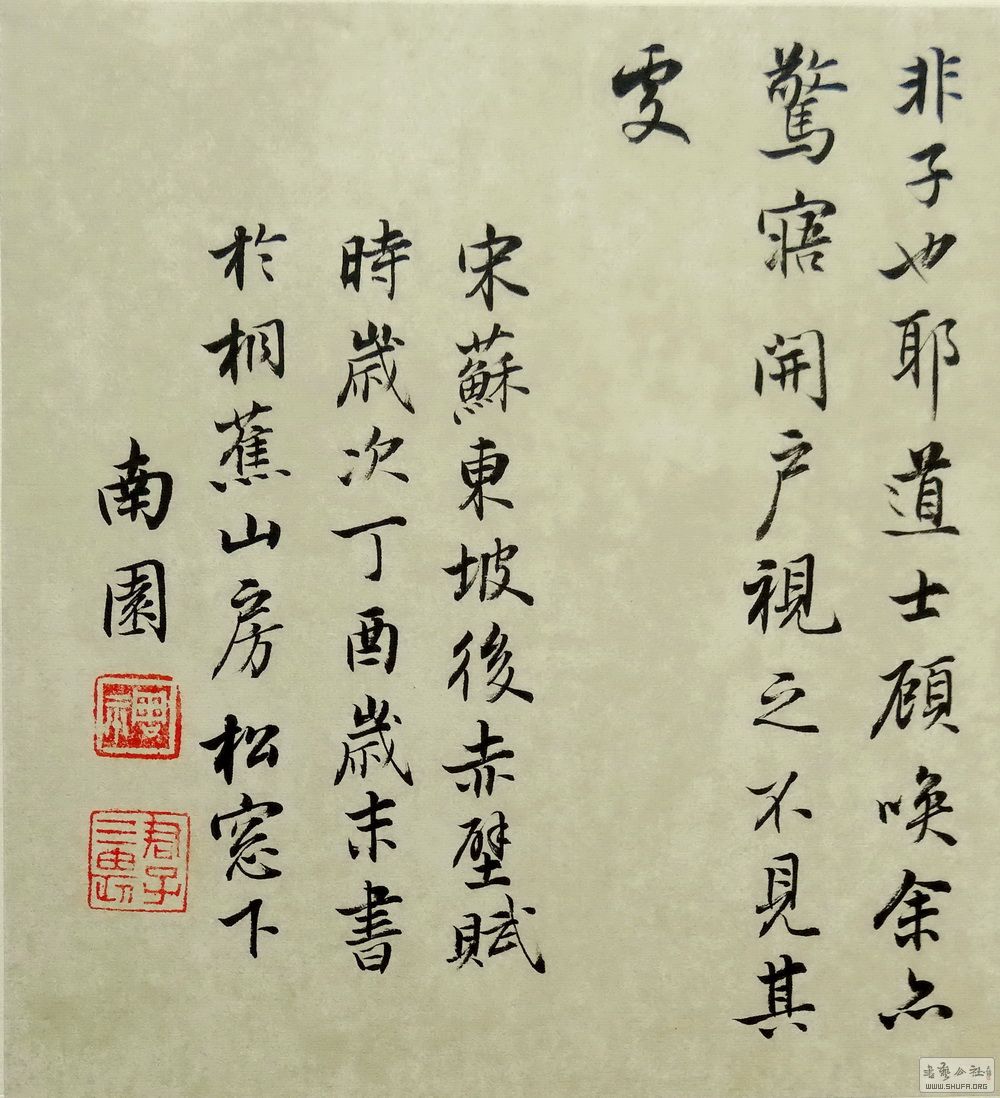 非子也耶道士顧喚余亦
驚寤開戶視之不見其
處
宋蘇東坡後赤壁賦
時歲次丁酉歲末書
於桐蕉山房松窓下
南園
君子
書藝公社
WWW.SHUFA.ORG